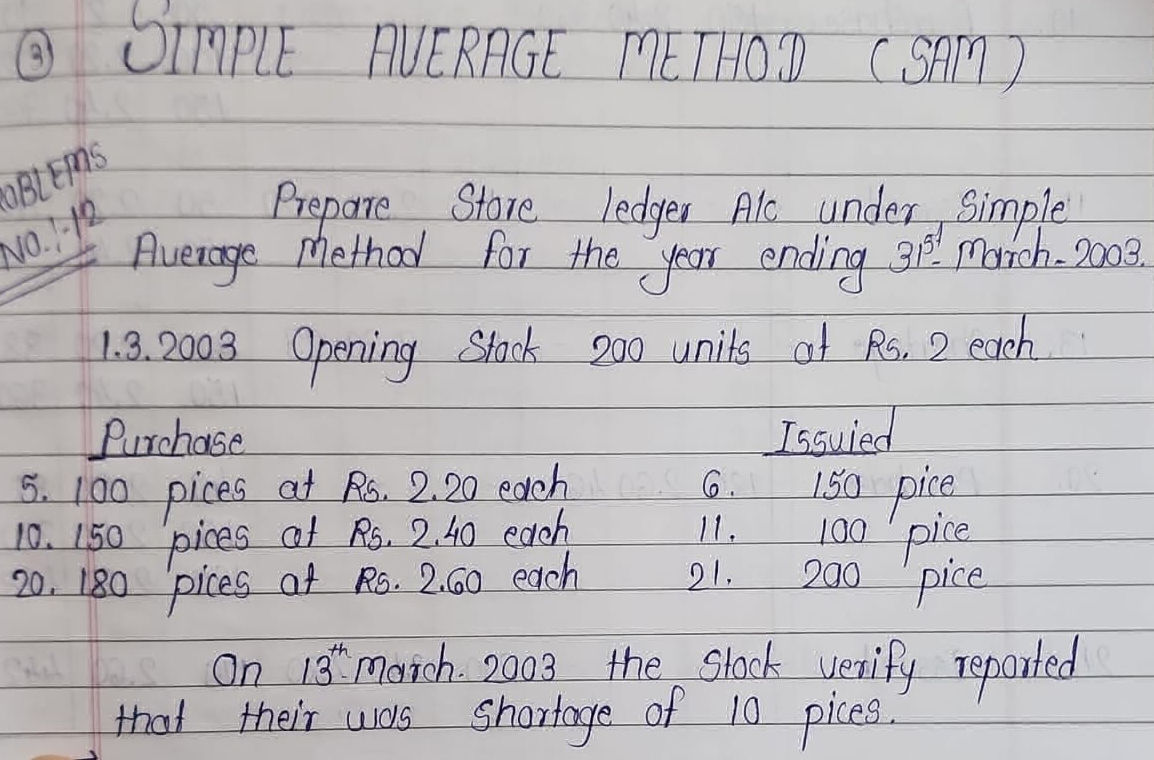 ③ SIMPLE AVERAGE METHOD (SAM)
OBLEMS
NO.:-12
Prepare Store ledger A/c under Simple
Average Method for the year ending 31st March-2003.
1.3.2003 Opening Stock 200 units at Rs. 2 each.
Purchase Issuied
5. 100 pices at Rs. 2.20 each 6. 150 pice
10. 150 pices at Rs. 2.40 each 11. 100 pice
20. 180 pices at Rs. 2.60 each 21. 200 pice
On 13th March. 2003 the Stock verify reported
that their was Shortage of 10 pices.